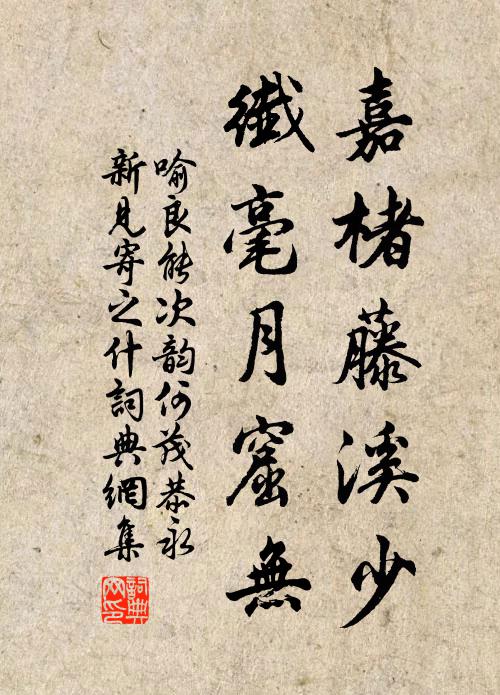 嘉楮藤溪少
纖毫月窟無
喻良能次韵何茂恭永
新見寄之什詞典網集
詞典網印